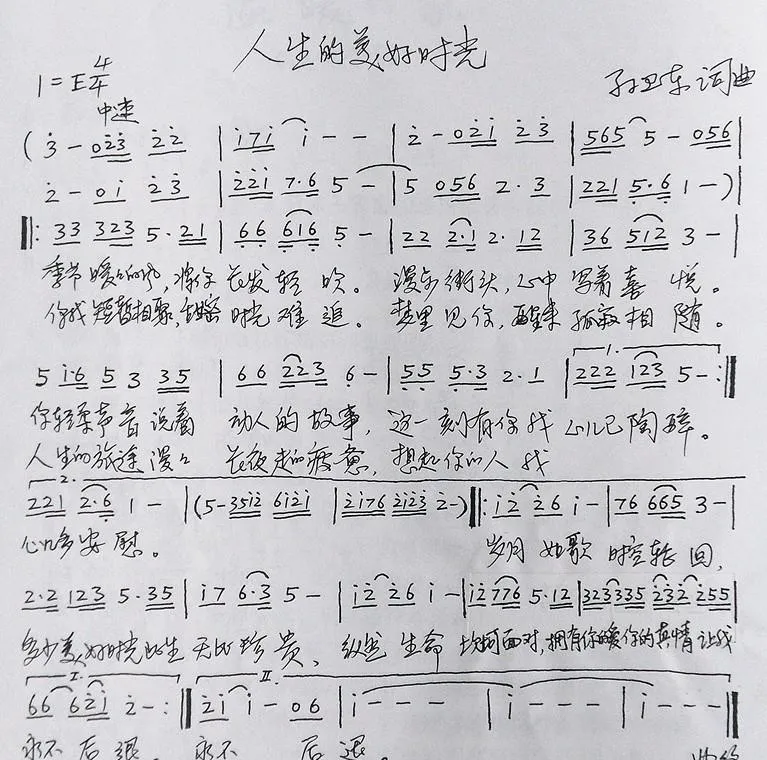 人生的美好时光
1=E 4/4
中速
孙卫东 词曲
(3̇ - 02̇3̇ 2̇2̇ | 1̇71̇ 1̇ - - | 2̇ - 02̇1̇ 2̇3̇ | 565 5 - 056 |
2̇ - 01̇ 2̇3̇ | 2̇2̇1̇ 7·6 5 - | 5 056 2·3 | 221 5̣·6̣ 1 -) |
‖: 33 323 5·21 | 6̣6̣ 6̣16̣ 5̣ - | 22 2·1 2·12 | 36 512 3 - |
季节暖暖的风,将你长发轻吹。漫步街头,心中写着喜悦。
你我短暂相聚, 时光难追。梦里见你,醒来孤寂相随。
5 1̇·6 5 3 35 | 66 223 6 - | 5̣5̣ 5̣·3 2·1 | 1. 222 123 5 - :‖
你轻柔声音说着 动人的故事,这一刻有你我心儿已陶醉。
人生的旅途漫漫 长夜走的疲惫,想起你的人我
2. 221 2·6̣ 1 - | (5-351̇2̇ 61̇2̇1̇ | 2̇1̇76 2̇1̇2̇3̇ 2̇-) ‖: 1̇2̇ 2̇6 1̇ - | 76 665 3 - |
心儿多安慰。 岁月如歌 时空轮回,
2·2 123 5·35 | 1̇7 6·3 5 - | 1̇2̇ 2̇6 1̇ - | 1̇2̇776 5·12 | 323335 2̇3̇2̇ 2̇55 |
多少美好时光此生无比珍贵、纵然生命 面对,拥有你暖你的真情让我
I. 66 62̇1̇ 2̇ - :‖ II. 2̇1̇ 1̇ - 06 | 1̇ - - - | 1̇ - - - | 1̇ - - - ‖
永不后退。永不 后退。